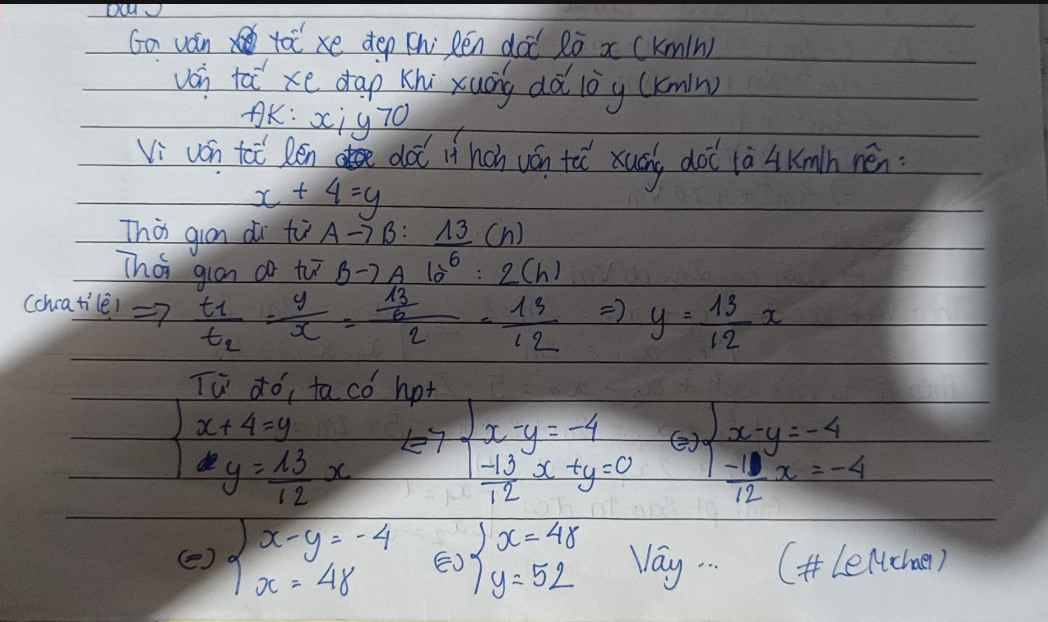 Bài 5
Gọi vấn tốc xe đẹp khi lên dốc là x (km/h)
vận tốc xe đạp khi xuống dố là y (km/h)
ĐK: x; y > 0
Vì vận tốc lên dốc ít hơn vận tốc xuống dốc là 4 km/h nên:
x + 4 = y
Thời gian đi từ A → B: 13/6 (h)
Thời gian đi từ B → A là : 2 (h)
(chưa tỉ lệ) => t1/t2 = y/x = (13/6)/2 = 13/12 => y = 13/12 x
Từ đó, ta có hpt
{ x + 4 = y ; y = 13/12 x <=> { x - y = -4 ; -13/12 x + y = 0 <=> { x - y = -4 ; -1/12 x = -4
<=> { x - y = -4 ; x = 48 <=> { x = 48 ; y = 52 Vậy ... (# LeMichael)